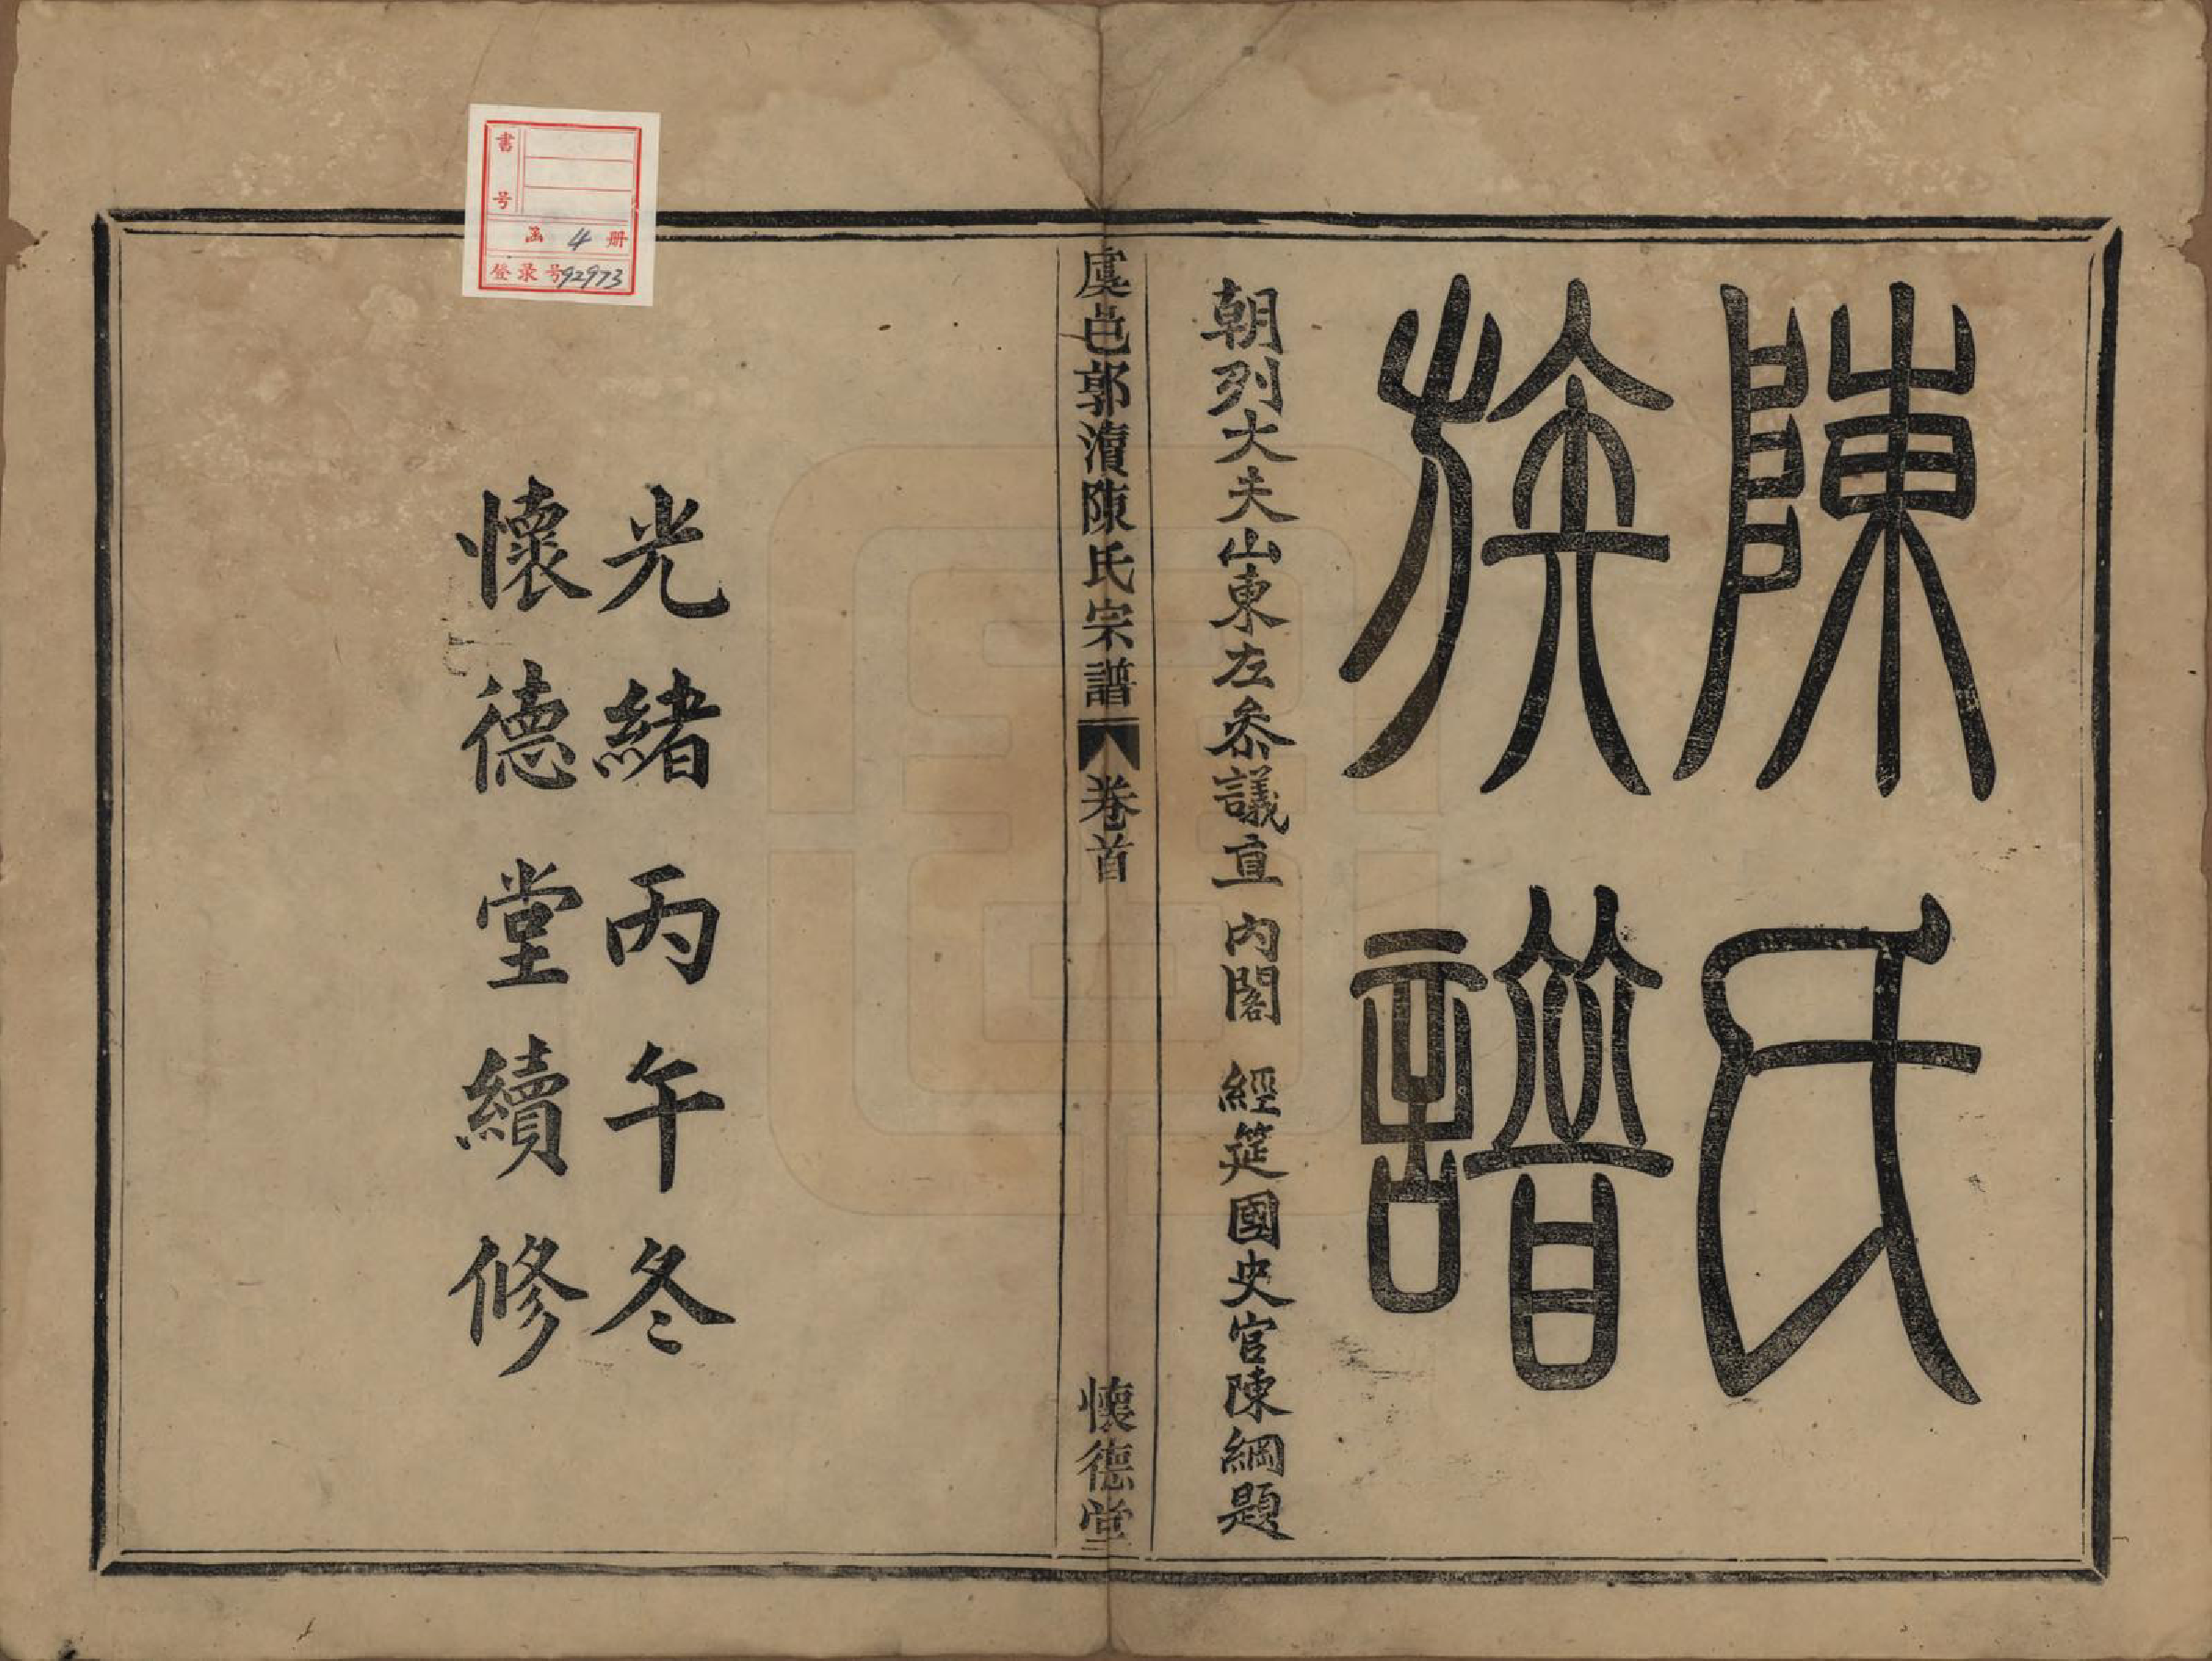 陳氏
族譜
朝列大夫山東左叅議直 內閣 經筵國史官陳綱題
虞邑郭瀆陳氏宗譜 卷首 懷德堂
光緒丙午冬
懷德堂續修
書号
函 4 册
登录号92973